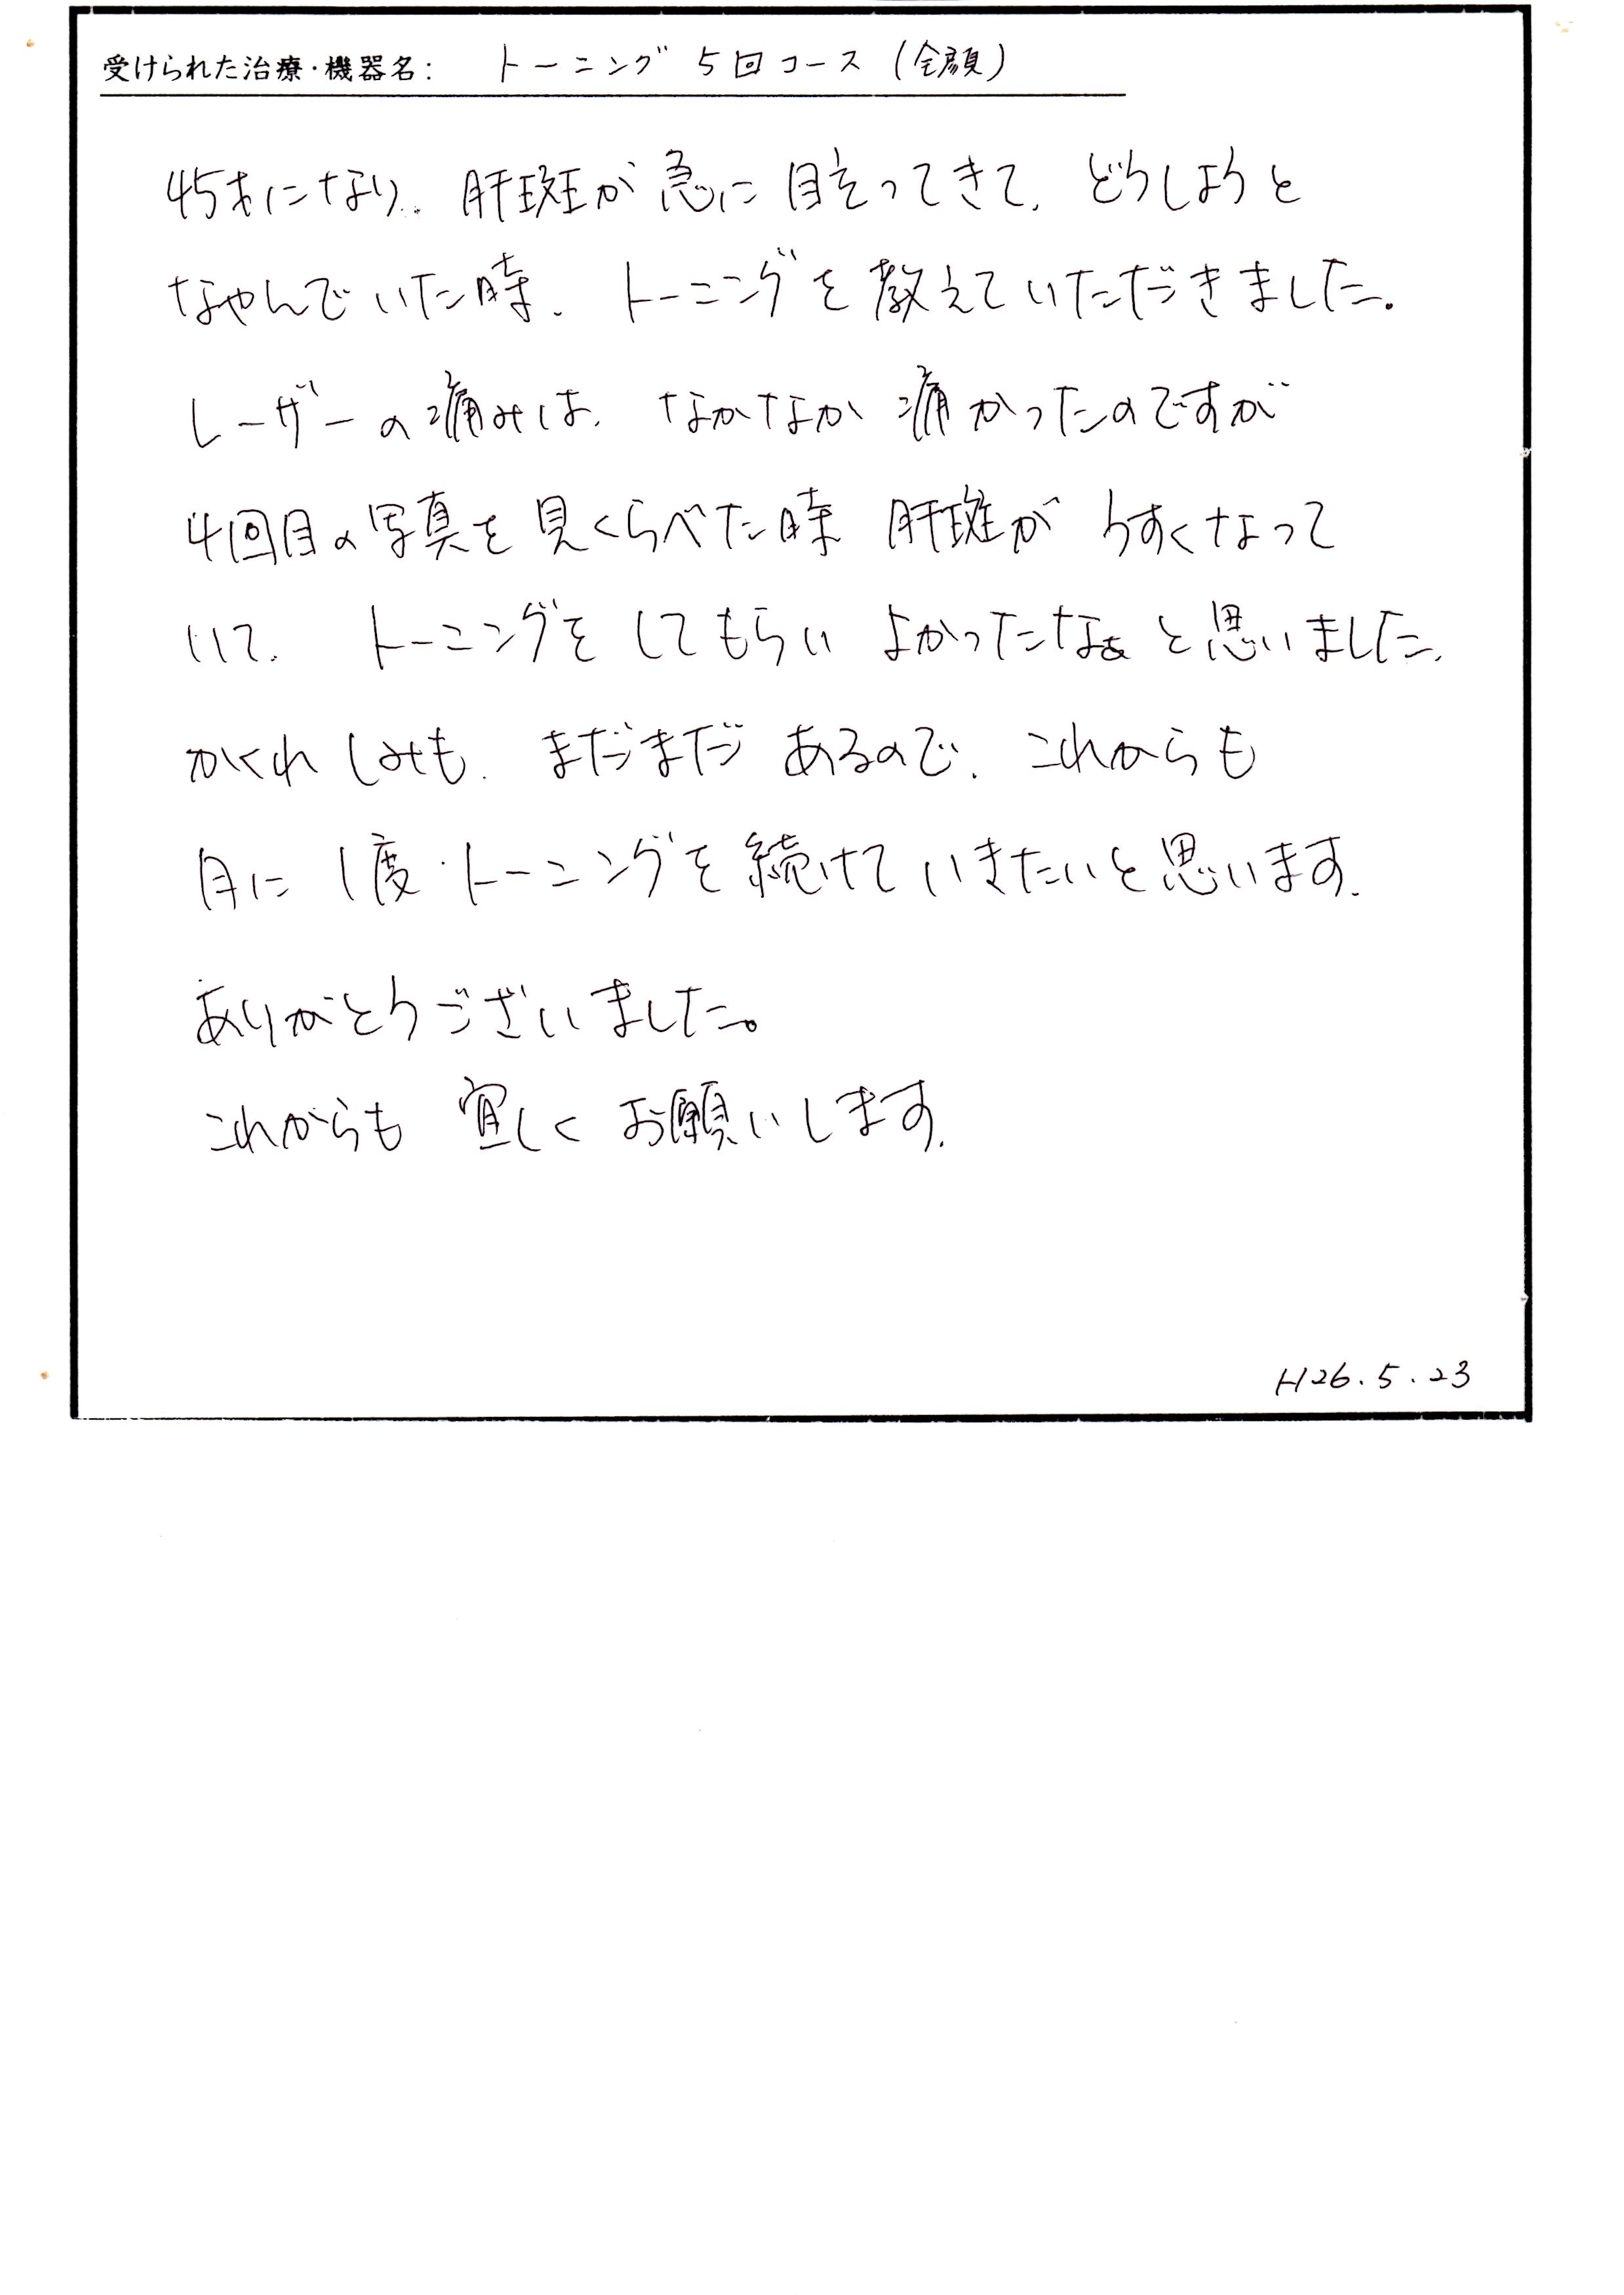 受けられた治療・機器名: トーニング 5回コース (全顔)
45才になり、肝斑が急に目立ってきて、どうしようと
なやんでいた時、トーニングを教えていただきました。
レーザーの痛みは、なかなか痛かったのですが
4回目の写真を見くらべた時 肝斑が うすくなって
いて、トーニングを してもらい よかったなぁと思いました。
かくれしみも、まだまだ あるので、これからも
月に1度、トーニングを続けていきたいと思います。
ありがとうございました。
これからも 宜しく お願いします。
H26.5.23